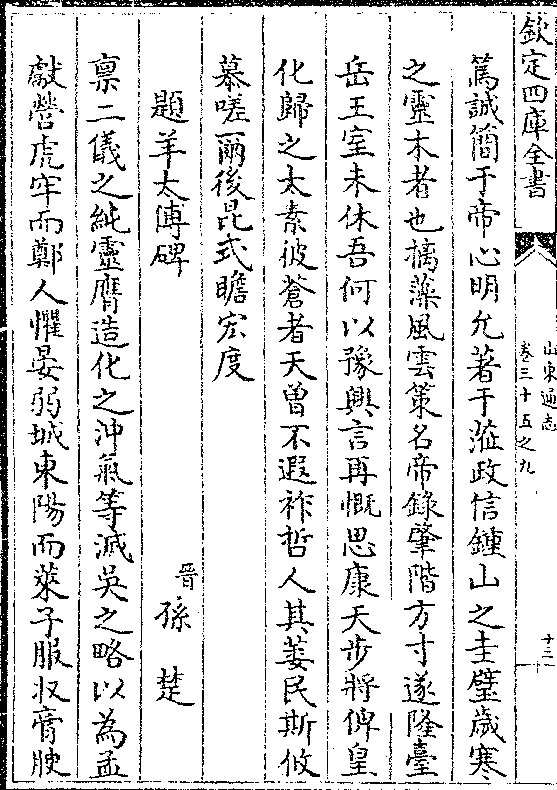 欽定四庫全書
山東通志
卷三十五之九
十三
篤誠簡于帝心明允著于涖政信鍾山之圭璧歲寒
之靈木者也摛藻風雲策名帝錄肇階方寸遂隆臺
岳王室未休吾何以豫興言再慨思康天步將俾皇
化歸之太素彼蒼者天曾不遐祚哲人其萎民斯攸
慕嗟爾後昆式瞻宏度
題羊太傅碑
晉孫楚
禀二儀之純靈膺造化之沖氣等滅吳之略以為孟
獻營虎牢而鄭人懼晏弱城東陽而萊子服收膏腴